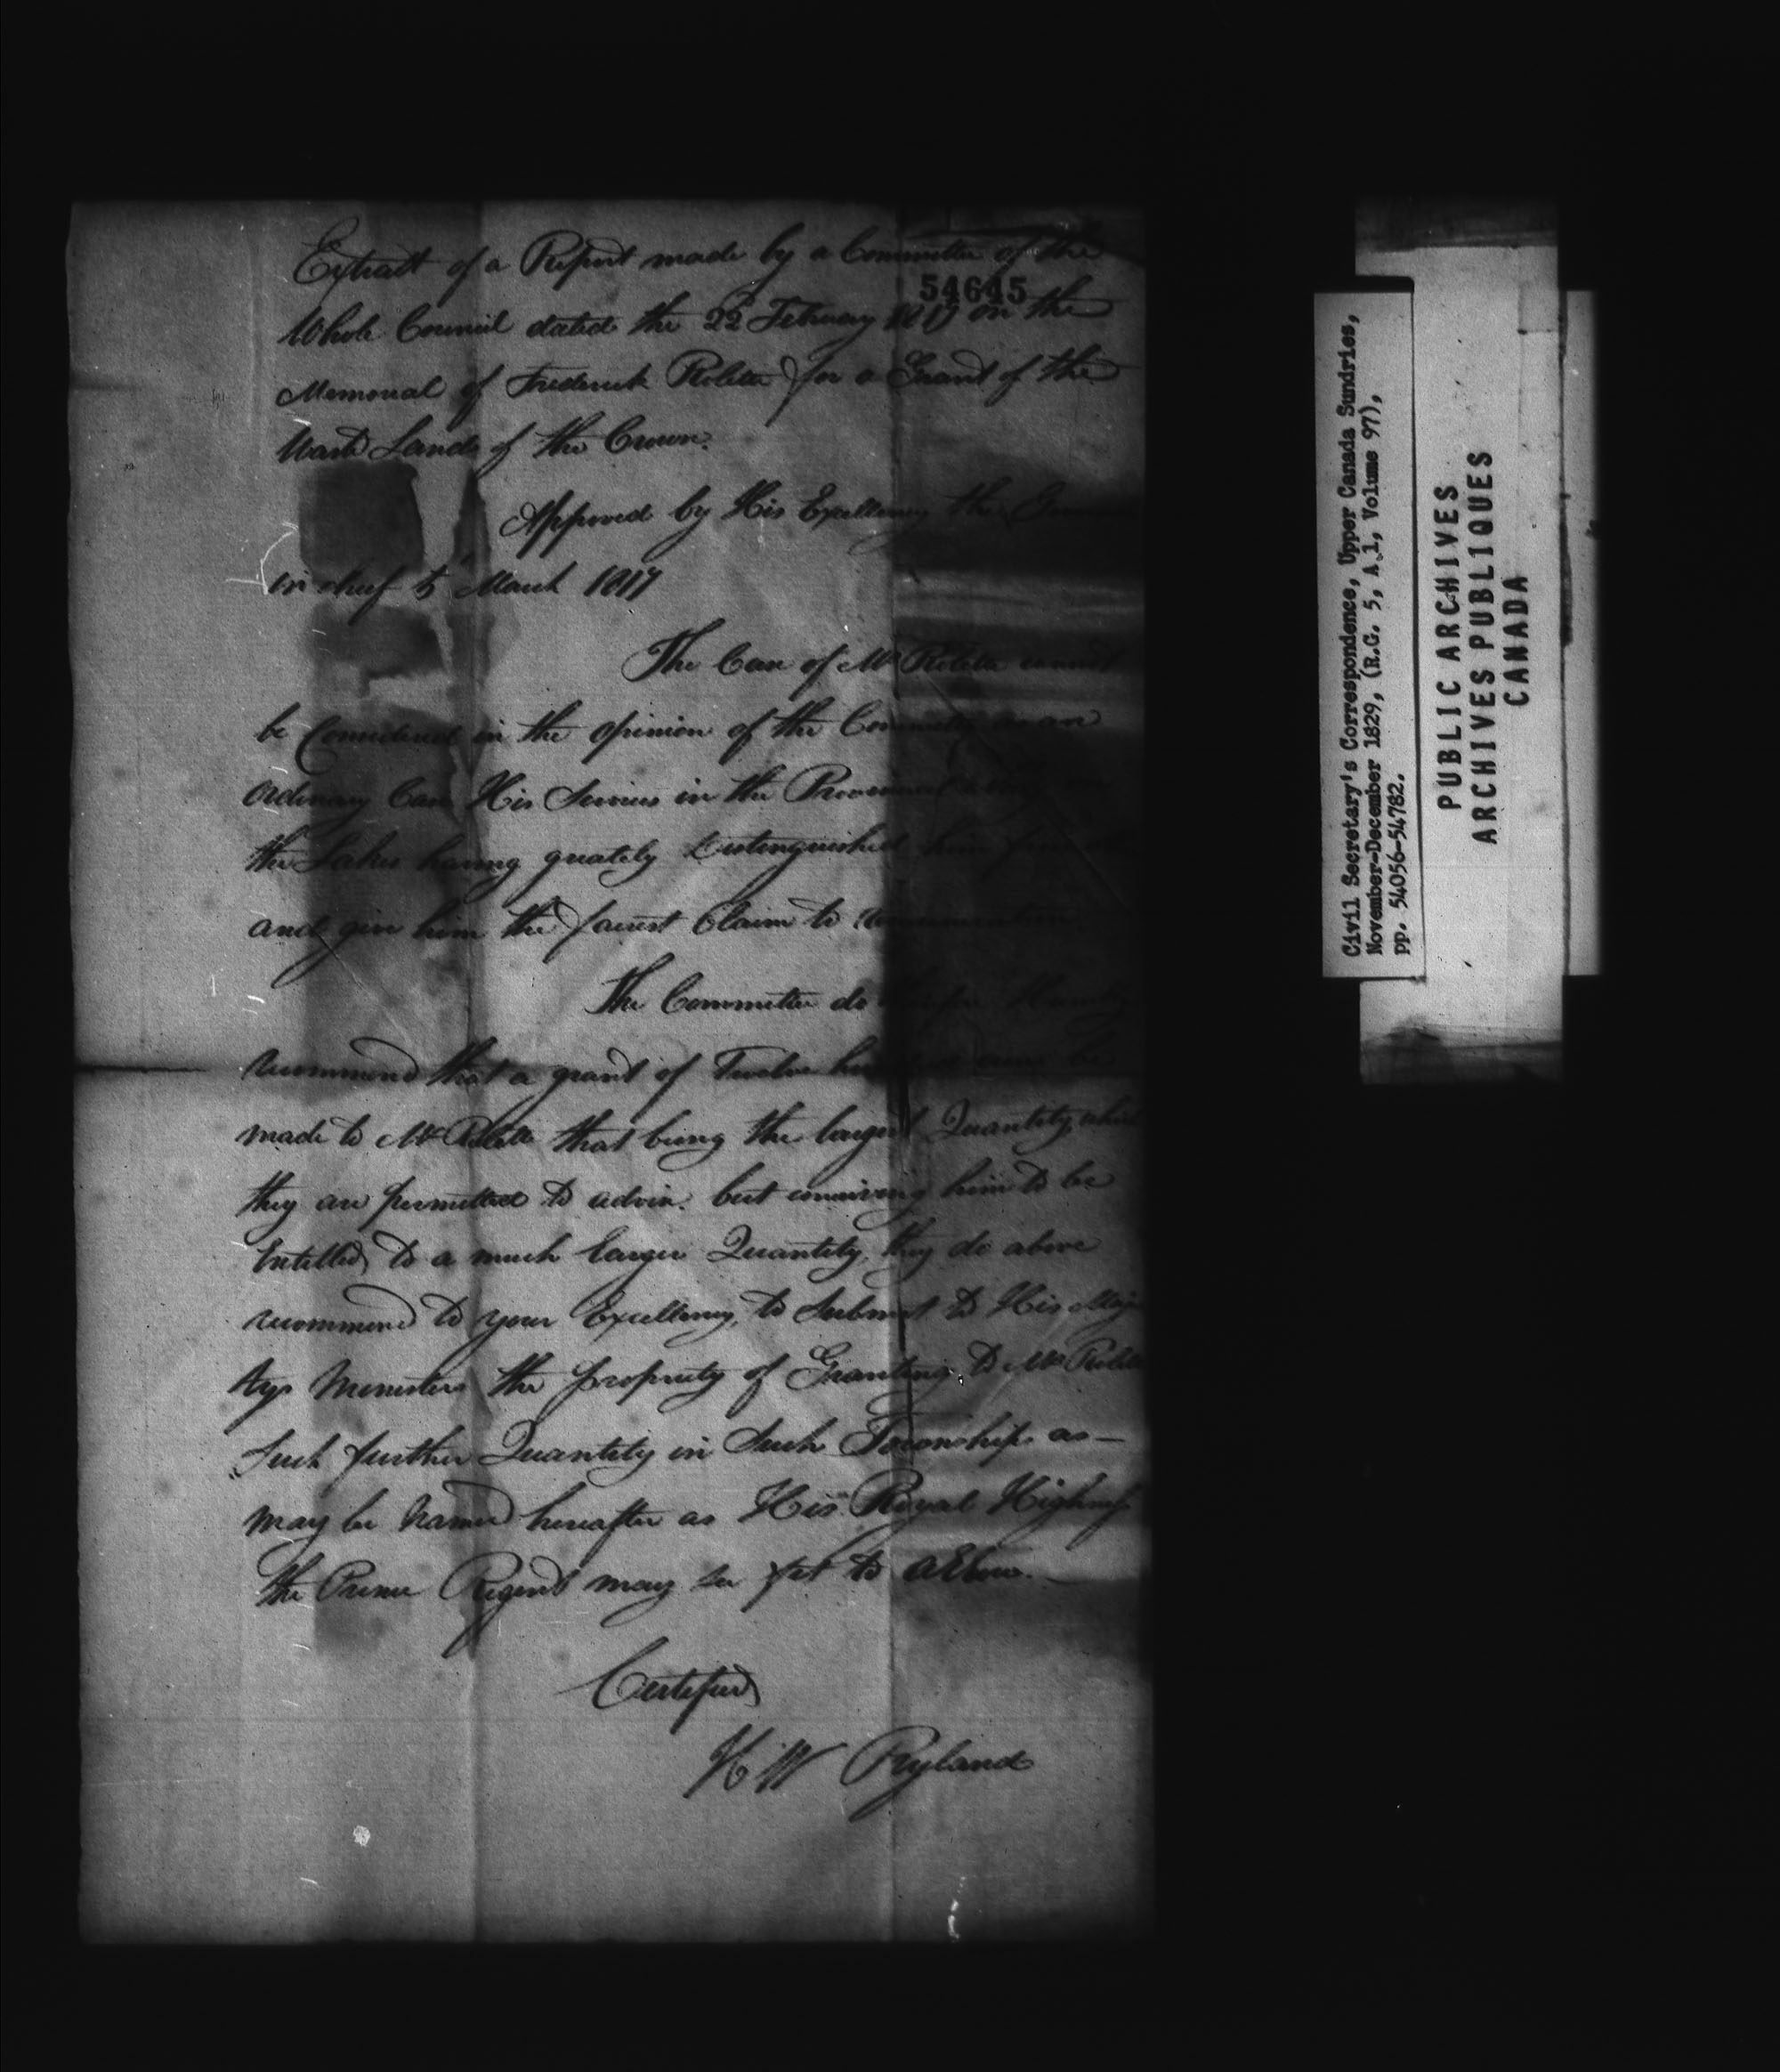 Extract of a Report made by a Committee of the
54645
Whole Council dated the 22 February 1817 on the
Memorial of Frederick Rolette for a Grant of the
Waste Lands of the Crown.
Approved by His Excellency the
in chief 5 March 1817
The Case of Mr Rolette cannot
be Considered in the opinion of the Committee as an
Ordinary Case His Services in the Provincial
the Lakes having greatly distinguished him from
and give him the fairest Claim to
The Committee do Humbly
recommend that a grant of Twelve hundred acres be
made to Mr Rolette that being the largest Quantity which
they are permitted to advise. but conceiving him to be
Entitled to a much larger Quantity, they do above
recommend to your Excellency, to Submit to His Maje
tys Ministers the propriety of Granting to Mr Rolette
Such further Quantity in Such Township as—
may be named hereafter as His Royal Highness
the Prince Regent may see fet to allow.—
Certified
H W Ryland
Civil Secretary's Correspondence, Upper Canada Sundries,
November-December 1829, (R.G. 5, A 1, Volume 97),
pp. 54056-54782.
PUBLIC ARCHIVES
ARCHIVES PUBLIQUES
CANADA